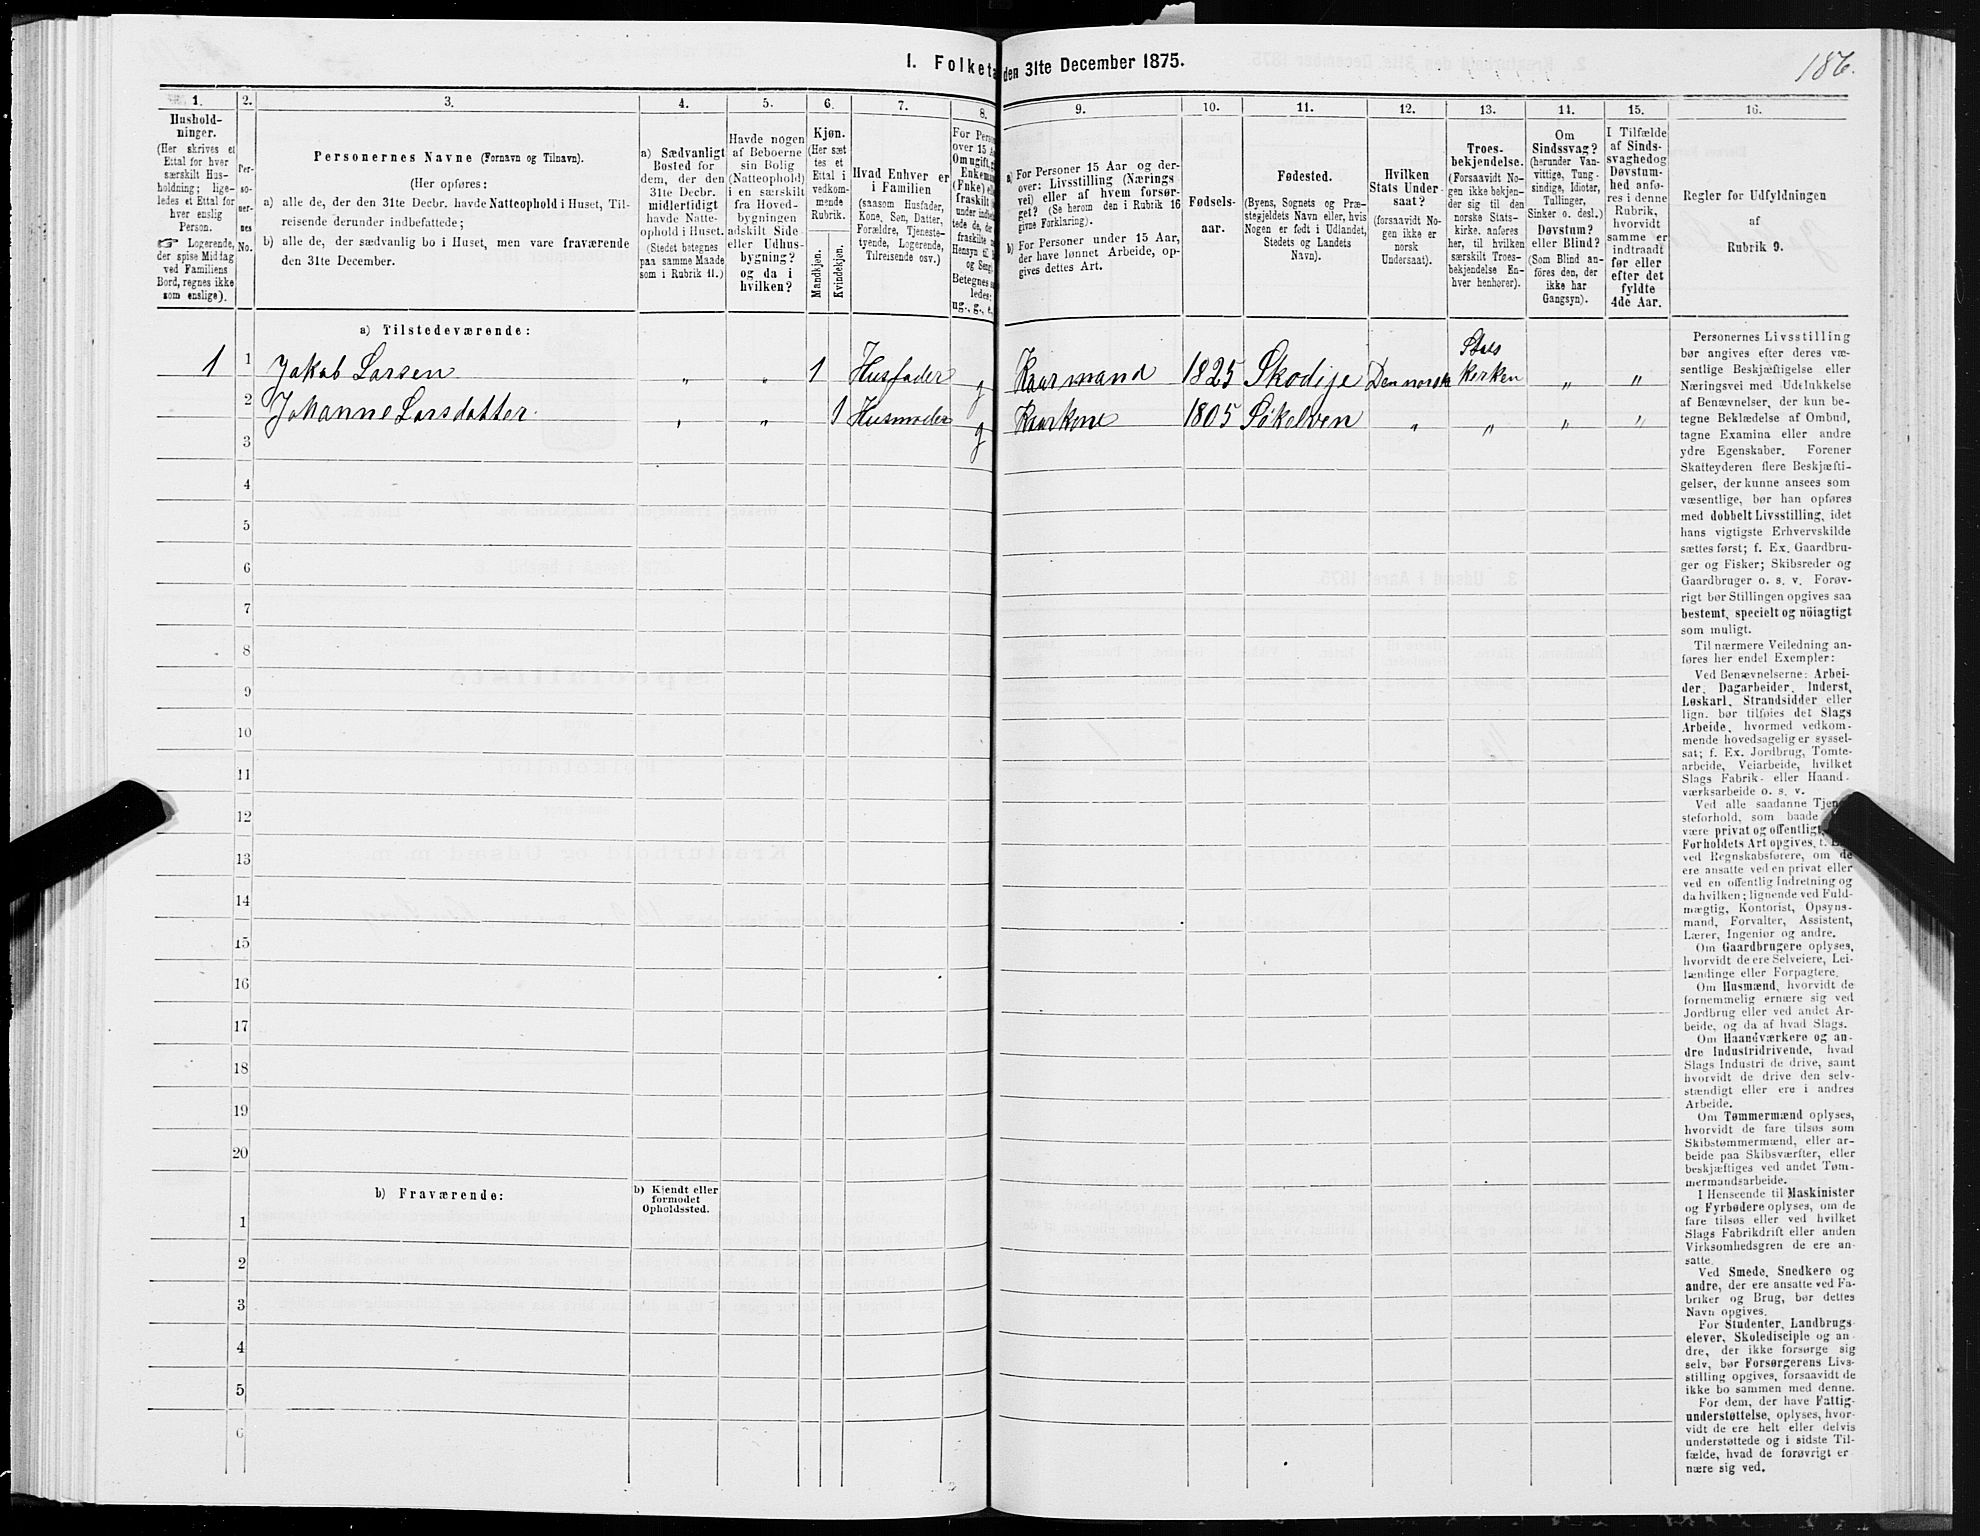 I. Folketæ
den 31te December 1875.
186.
1.
2.
3.
4.
5.
6.
7.
8.
9.
10.
11.
12.
13.
14.
15.
16.
Hushold-
ninger.
(Her skrives et
Ettal for hver
særskilt Hus-
holdning; lige-
ledes et Ettal for
hver enslig
Person.
☞ Logerende,
der spise Middag
ved Familiens
Bord, regnes ikke
som enslige).
Per-
so-
ner-
nes
No.
Personernes Navne (Fornavn og Tilnavn).
(Her opføres:
a) alle de, der den 31te Decbr. havde Natteophold i Huset, Til-
reisende derunder indbefattede;
b) alle de, der sædvanlig bo i Huset, men vare fraværende
den 31te December.
a) Sædvanligt
Bosted for
dem, der den
31te Decbr.
midlertidigt
havde Natte-
ophold i Huset.
(Stedet betegnes
paa samme Maade
som i Rubrik 11.)
Havde nogen
af Beboerne
sin Bolig
(Natteophold)
i en særskilt
fra Hoved-
bygningen
adskilt Side-
eller Udhus-
bygning?
og da i
hvilken?
Kjøn.
(Her sæt-
tes et
Ettal i
vedkom-
mende
Rubrik.
Mandkjøn.
Kvindekjøn.
Hvad Enhver er
i Familien
(saasom Husfader,
Kone, Søn, Datter,
Forældre, Tjeneste-
tyende, Logerende,
Tilreisende osv.)
For Pers
over 15 A
Om ugift, g
Enkem
(Fnke) el
fraskilt
under indb
tede de, der
fraskilte
Hensyn til
og Seng
Betegnes s
ledes:
ug., g., e.
a) For Personer 15 Aar og der-
over: Livsstilling (Nærings-
vei) eller af hvem forsør-
get? (Se herom den i Rubrik 16
givne Forklaring).
b) For Personer under 15 Aar,
der have lønnet Arbeide, op-
gives dettes Art.
Fødsels-
aar.
Fødested.
(Byens, Sognets og Præ-
stegjeldets Navn eller, hvis
Nogen er født i Udlandet,
Stedets og Landets
Navn).
Hvilken
Stats Under-
saat?
(forsaavidt No-
gen ikke er
norsk
Undersaat).
Troes-
bekjendelse.
(Forsaavidt No-
gen ikke bekjen-
der sig til den
norske Stats-
kirke, anføres
her, til hvilken
særskilt Troes-
bekjendelse En-
hver henhører).
Om
Sindssvag?
(herunder Van-
vittige, Tung-
sindige, Idioter,
Tullinger,
Sinker o. desl.)
Døvstum?
eller Blind?
(Som Blind an-
føres den, der
ikke har
Gangsyn).
I Tilfælde
af Sinds-
svaghedog
Døvstum-
hed anfø-
res i denne
Rubrik,
hvorvidt
samme er
indtraadt
før eller
efter det
fyldte
4de Aar.
Regler for Udfyldningen
af
Rubrik 9.
a) Tilstedeværende:
1 1 Jakob Larsen „ „ 1 Husfader g Kaarmand 1825 Skodije Den norske Stats kirken „ „
2 Johanne Larsdatter „ „ 1 Husmoder g Kaarkone 1805 Søkelven „ „ „ „
3
4
5
6
7
8
9
10
11
12
13
14
15
16
17
18
19
20
b) Fraværende:
b) Kjendt eller
formodet
Opholdssted.
1
2
3
4
5
6
Personernes Livsstilling
bør angives efter deres væ-
sentlige Beskjæftigelse eller
Næringsvei med Udelukkelse
af Benævnelser, der kun be-
tegne Beklædelse af Ombud,
tagne Examina eller andre
ydre Egenskaber. Forener
Skatteyderen flere Beskjæfti-
gelser, der kunne ansees som
væsentlige, bør han opføres
med dobbelt Livsstilling, idet
hans vigtigste Erhvervskilde
sættes først; f. Ex. Gaardbru-
ger og Fisker; Skibsreder og
Gaardbruger o. s. v. Forøv-
rigt bør Stillingen opgives saa
bestemt, specielt og nöiagtigt
som muligt.
Til nærmere Veiledning an-
føres her endel Exempler:
Ved Benævnelserne: Arbei-
der, Dagarbeider, Inderst,
Løskarl, Strandsidder eller
lign. bør tilføies det Slags
Arbeide, hvormed vedkom-
mende hovedsagelig er syssel-
sat; f. Ex. Jordbrug, Tomte-
arbeide, Veiarbeide, hvilket
Slags Fabrik- eller Haand-
værksarbeide o. s. v.
Ved alle saadanne Tjene-
steforhold, som baade
være privat og offentligt,
Forholdets Art opgives, f.
ved Regnskabsførere, om de
ere ansatte ved en privat eller
ved en offentlig Indretning og
da hvilken; lignende ved Fuld-
mægtig, Kontorist, Opsyns-
mand, Forvalter, Assistent,
Lærer, Ingeniør og andre.
Om Gaardbrugere oplyses,
hvorvidt de ere Selveiere, Lei-
lændinge eller Forpagtere.
Om Husmænd, hvorvidt de
fornemmelig ernære sig ved
Jordbrug eller ved andet Ar-
beide, og da af hvad Slags.
Om Haandværkere og an-
dre Industridrivende, hvad
Slags Industri de drive, samt
hvorvidt de drive den selv-
stændigt eller ere i andres
Arbeide.
Om Tømmermænd oplyses,
hvorvidt de fare tilsøs som
Skibstømmermænd, eller ar-
beide paa Skibsværfter, eller
beskjæftiges ved andet Tøm-
mermandsarbeide.
I Henseende til Maskinister
og Fyrbødere oplyses, om de
fare tilsøs eller ved hvilket
Slags Fabrikdrift eller anden
Virksomhedsgren de ere an-
satte.
Ved Smede, Snedkere og
andre, der ere ansatte ved Fa-
briker og Brug, bør dettes
Navn opgives.
For Studenter, Landbrugs-
elever, Skoledisciple og an-
dre, der ikke forsørge sig
selv, bør Forsørgerens Livs-
stilling opgives, forsaavidt de
ikke bo sammen med denne.
For dem, der have Fattig-
understøttelse, oplyses, hvor-
vidt de ere helt eller delvis
understøttede og i sidste Til-
fælde, hvad de forøvrigt er-
nære sig ved.